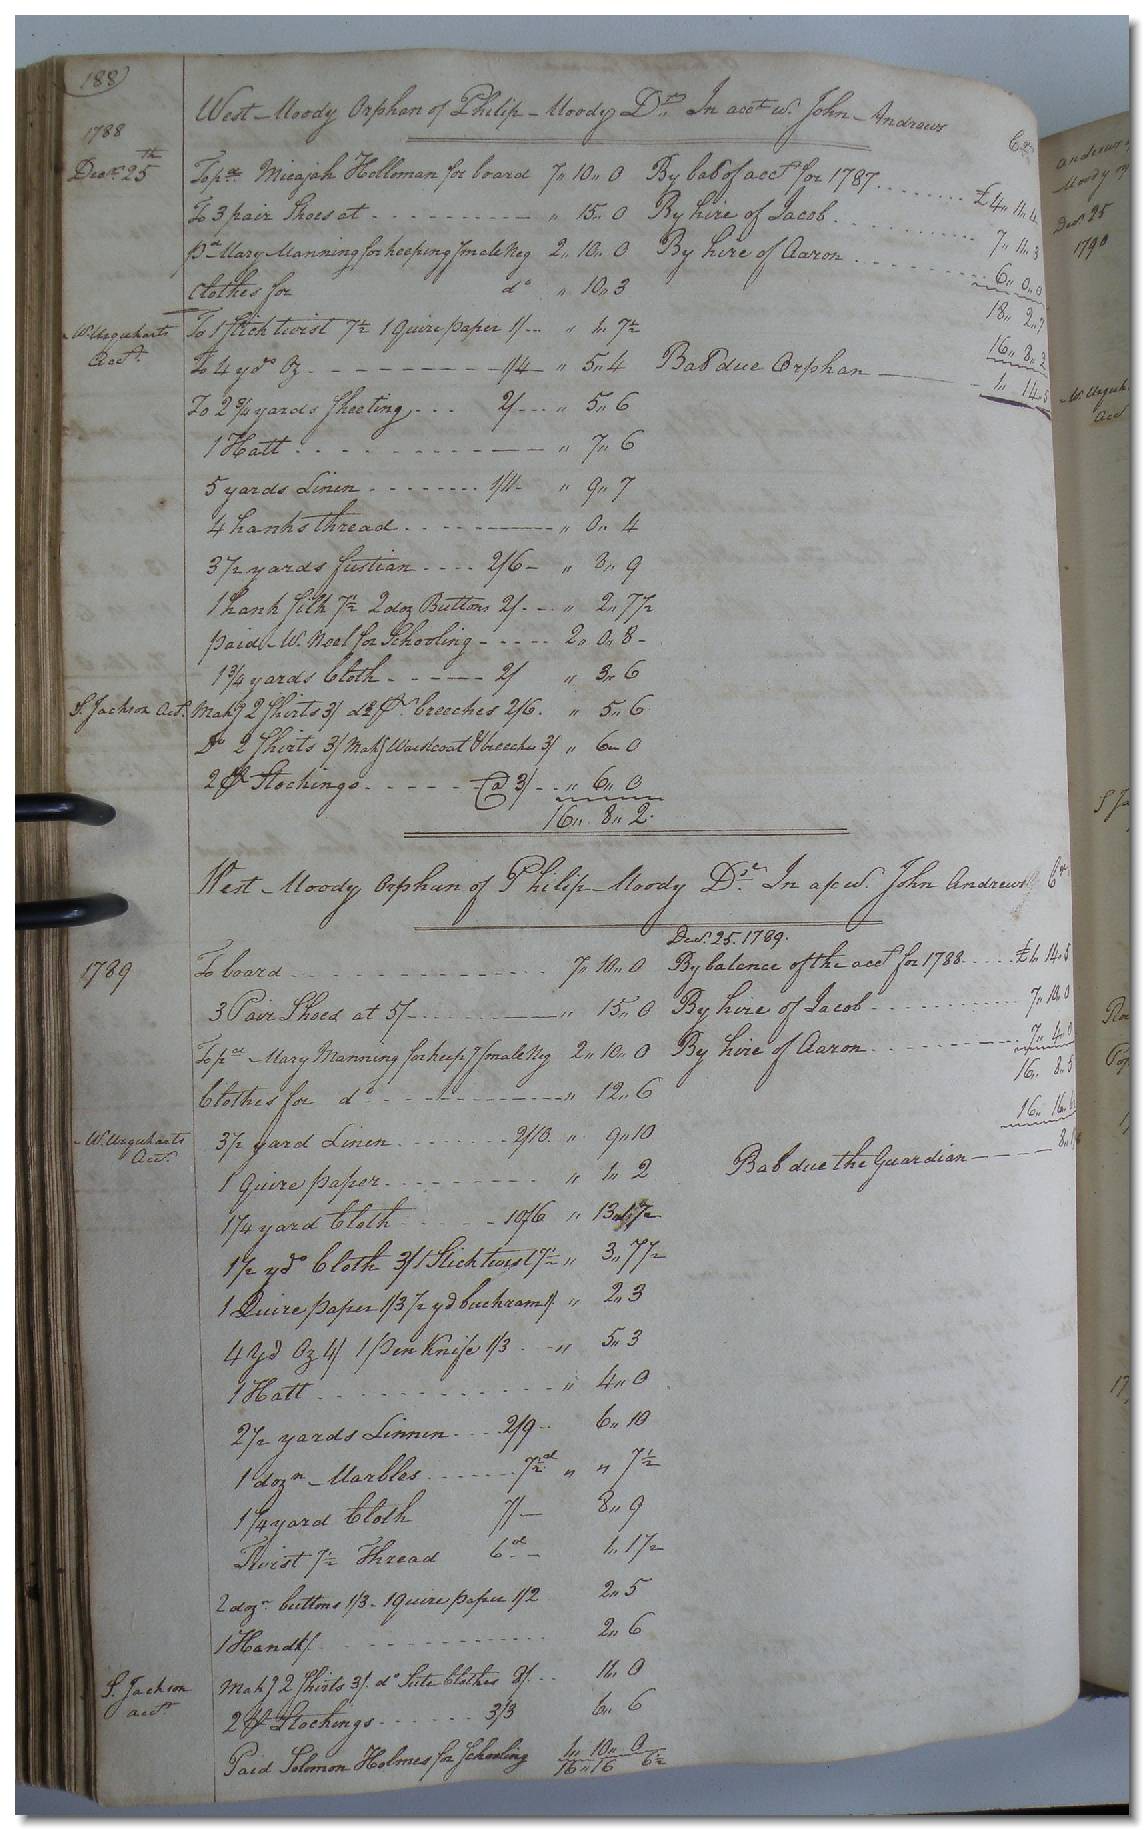 188
West Moody Orphan of Philip Moody Dr. In acct w. John Andrews Cr
1788
Decr. 25th To pd. Micajah Holloman for board 7,, 10,, 0 By bal of acct for 1787 £4,, 11,, 4
To 3 pair Shoes at ,, 15,, 0 By hire of Jacob 7,, 11,, 3
pd Mary Manning for keeping female Neg 2,, 10,, 0 By hire of Aaron 6,, 0,, 0
Clothes for do ,, 10,, 3 18,, 2,, 7
W. Urquharts Acct. To 1 Stick twist 7½ 1 Quire paper 1/ ,, 1,, 7½
16,, 8,, 2
To 4 yds Oz 1/4 ,, 5,, 4 Bal due Orphan 1,, 14,, 5
To 2 3/4 yards Sheeting 2/ ,, 5,, 6
1 Hatt ,, 7,, 6
5 yards Linen 1/11 ,, 9,, 7
4 hanks thread ,, 0,, 4
3½ yards fustian 2/6 ,, 8,, 9
1 hank Silk 7½ 2 doz Buttons 2/ ,, 2,, 7½
paid W. Neel for Schooling 2,, 0,, 8
1 3/4 yards Cloth 2/ ,, 3,, 6
S. Jackson Act. Makg 2 Shirts 3/ do pr. breeches 2/6 ,, 5,, 6
Do 2 Shirts 3/ Makg Waistcoat & breeches 3/ ,, 6,, 0
2 pr Stockings @ 3/ ,, 6,, 0
16,, 8,, 2
West Moody Orphan of Philip Moody Dr. In ac w. John Andrews Cr
Decr. 25. 1789.
1789 To board 7,, 10,, 0 By balance of the acct for 1788 £1,, 14,, 5
3 Pair Shoes at 5/ ,, 15,, 0 By hire of Jacob 7,, 10,, 0
To pd Mary Manning for keepg female Neg 2,, 10,, 0 By hire of Aaron 7,, 4,, 0
16,, 8,, 5
Clothes for do ,, 12,, 6
16,, 16,, 6
W. Urquharts Acct. 3½ yard Linen 2/10 ,, 9,, 10
8,, 1
1 Quire paper ,, 1,, 2 Bal due the Guardian
1¼ yard Cloth 10/6 ,, 13,, 1½
1½ yds Cloth 3/ 1 Stick twist 7½ ,, 3,, 7½
1 Quire paper 1/3 ½ yd buchram 1/ ,, 2,, 3
4 Yd Oz 4/ 1 Pen Knife 1/3 ,, 5,, 3
1 Hatt ,, 4,, 0
2½ yards Linnen 2/9 6,, 10
1 dozn Marbles 7½d ,, ,, 7½
1¼ yard Cloth 7/ 8,, 9
Twist 7½ Thread 6d 1,, 1½
2 dozn. buttons 1/3 1 Quire paper 1/2 2,, 5
1 Handkf. 2,, 6
S. Jackson act. Makg 2 Shirts 3/. do Sute Clothes 8/ 11,, 0
2 pr Stockings 3/3 6,, 6
Paid Solomon Holmes for Schooling 1,, 10,, 0
16,, 16 6½
Andrews
Moody
Decr 25
1790
W. Urquh
Acct
S Ja